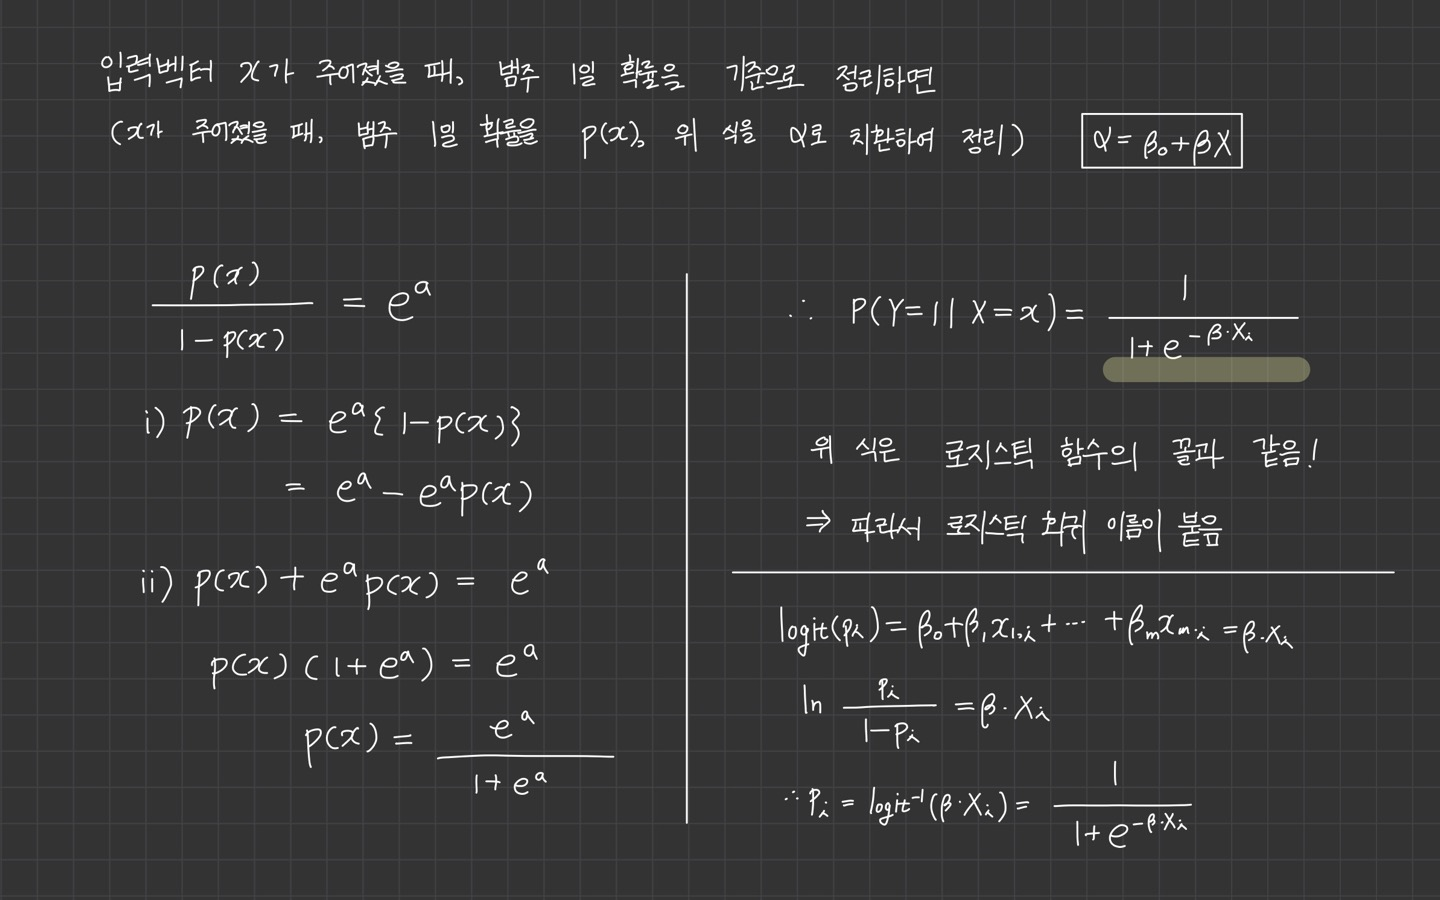 입력벡터 x가 주어졌을 때, 범주 1일 확률을 기준으로 정리하면
(x가 주어졌을 때, 범주 1일 확률을 p(x), 위 식을 α로 치환하여 정리)
α = β₀+βX
p(x)/(1-p(x)) = e^a
i) p(x) = e^a{1-p(x)}
= e^a - e^a p(x)
ii) p(x) + e^a p(x) = e^a
p(x) (1+e^a) = e^a
p(x) = e^a/(1+e^a)
∴ P(Y=1 | X=x) = 1/(1+e^(-β·Xᵢ))
위 식은 로지스틱 함수의 꼴과 같음!
⇒ 따라서 로지스틱 회귀 이름이 붙음
logit(pᵢ) = β₀+β₁x₁,ᵢ+ ··· +βₘxₘ,ᵢ = β·Xᵢ
ln pᵢ/(1-pᵢ) = β·Xᵢ
∴ pᵢ = logit⁻¹(β·Xᵢ) = 1/(1+e^(-β·Xᵢ))